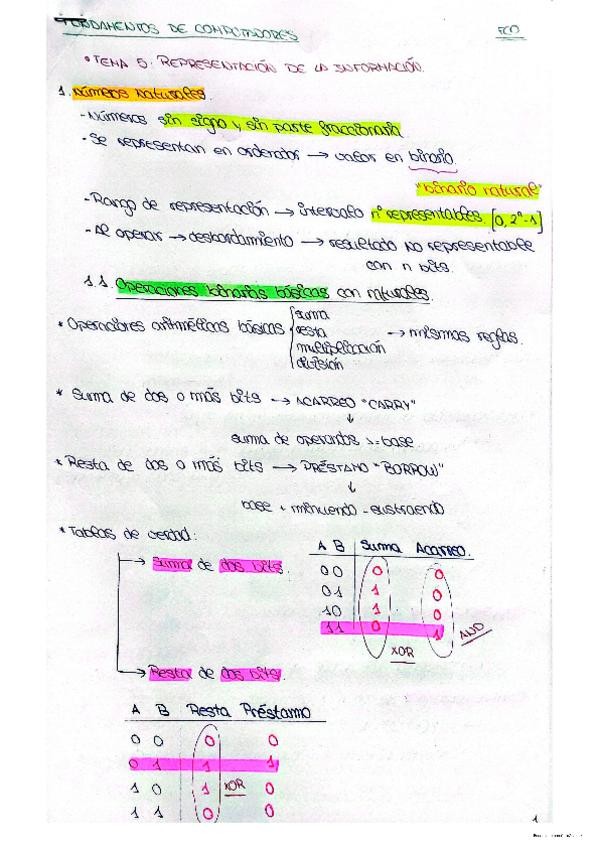 FUNDAMENTOS DE COMPUTADORES FCO
• TEMA 5: REPRESENTACIÓN DE LA INFORMACIÓN.
1. Números naturales.
- Números sin signo y sin parte fraccionaria
- Se representan en ordenador → valor en binario.
"binario natural"
- Rango de representación → intervalo nº representables. [0, 2ⁿ-1]
- Al operar → desbordamiento → resultado NO representable
con n bits.
1.1. Operaciones binarias básicas con naturales.
suma
* Operaciones aritméticas básicas resta → mismas reglas.
multiplicación
división
* Suma de dos o más bits → ACARREO "CARRY"
↓
suma de operandos >= base
* Resta de dos o más bits → PRÉSTAMO "BORROW"
↓
base + minuendo - sustraendo
* Tablas de verdad:
→ Suma de dos bits.
A B Suma Acarreo.
0 0 0 0
0 1 1 0
1 0 1 0
1 1 0 1
XOR AND
→ Resta de dos bits.
A B Resta Préstamo
0 0 0 0
0 1 1 1
1 0 1 XOR 0
1 1 0 0
1